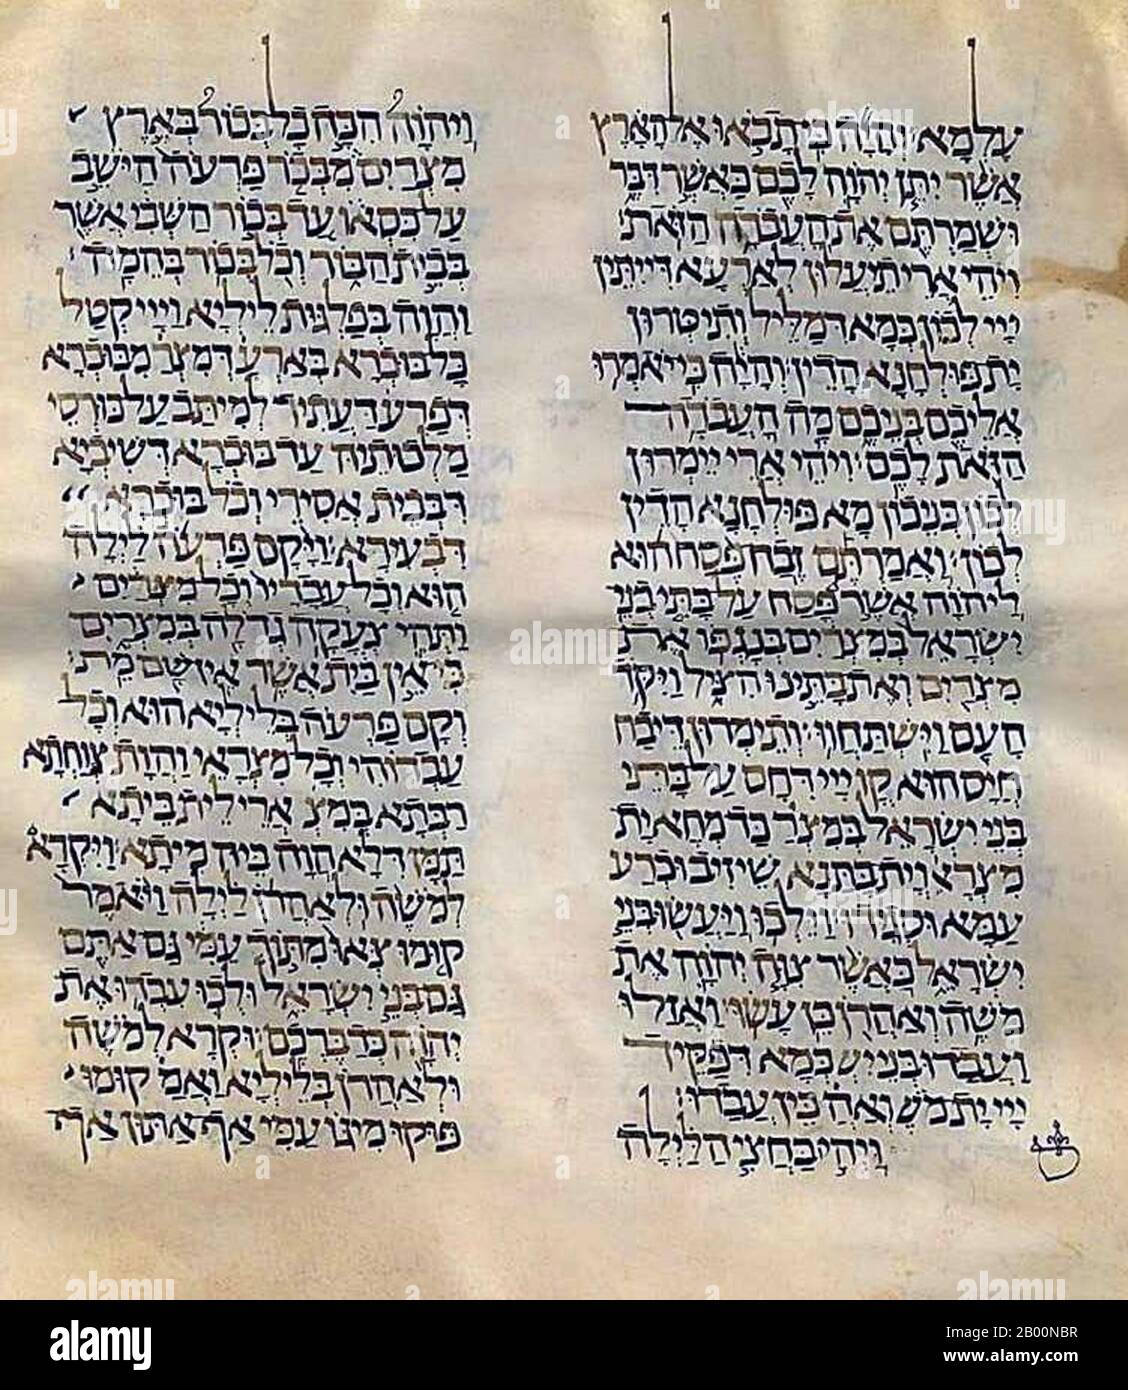 עלמא׃ והיה כי תבאו אל הארץ
אשר יתן יהוה לכם כאשר דבר
ושמרתם את העבדה הזאת׃
ויהי ארי תיעלון לארעא דייתין
ייי לכון כמא דמליל ותיטרון
ית פולחנא הדין והיה כי יאמרו
אליכם בניכם מה העבדה
הזאת לכם׃ ויהי ארי יימרון
לכון בניכון מא פולחנא הדין
לכון׃ ואמרתם זבח פסח הוא
ליהוה אשר פסח על בתי בני
ישראל במצרים בנגפו את
מצרים ואת בתינו הציל ויקד
העם וישתחוו׃ ותימרון דיבח
חיס הוא ייי על בתי
בני ישראל במצר כד מחא ית
מצרא וית בתנא שיזיב וכרע
עמא וילכו ויעשו בני
ישראל כאשר צוה יהוה את
משה ואהרן כן עשו׃ ואזלו
ועבדו בני יש כמא דפקיד
ייי ית מש ואה כין עבדו׃
ויהי בחצי הלילה
ויהוה הכה כל בכור בארץ
מצרים מבכר פרעה הישב
על כסאו עד בכור השבי אשר
בבית הבור וכל בכור בהמה׃
והוה בפלגות ליליא וייי קטל
כל בוכרא בארע דמצר מבוכרא
דפרע דעתיד למיתב על כורסי
מלכותיה עד בוכרא דשיביא
דבבית אסירי וכל בוכרא
דבעירא׃ ויקם פרעה לילה
הוא וכל עבדיו וכל מצרים
ותהי צעקה גדלה במצרים
כי אין בית אשר אין שם מת׃
וקם פרעה בליליא הוא וכל
עבדוהי וכל מצראי והות צוחתא
רבתא במצ ארי לית ביתא
תמן דלא הוה ביה מיתא׃ ויקרא
למשה ולאהרן לילה ויאמר
קומו צאו מתוך עמי גם אתם
גם בני ישראל ולכו עבדו את
יהוה כדברכם׃ וקרא למשה
ולאהרן בליליא ואמ קומו
פוקו מיגו עמי אף אתון אף